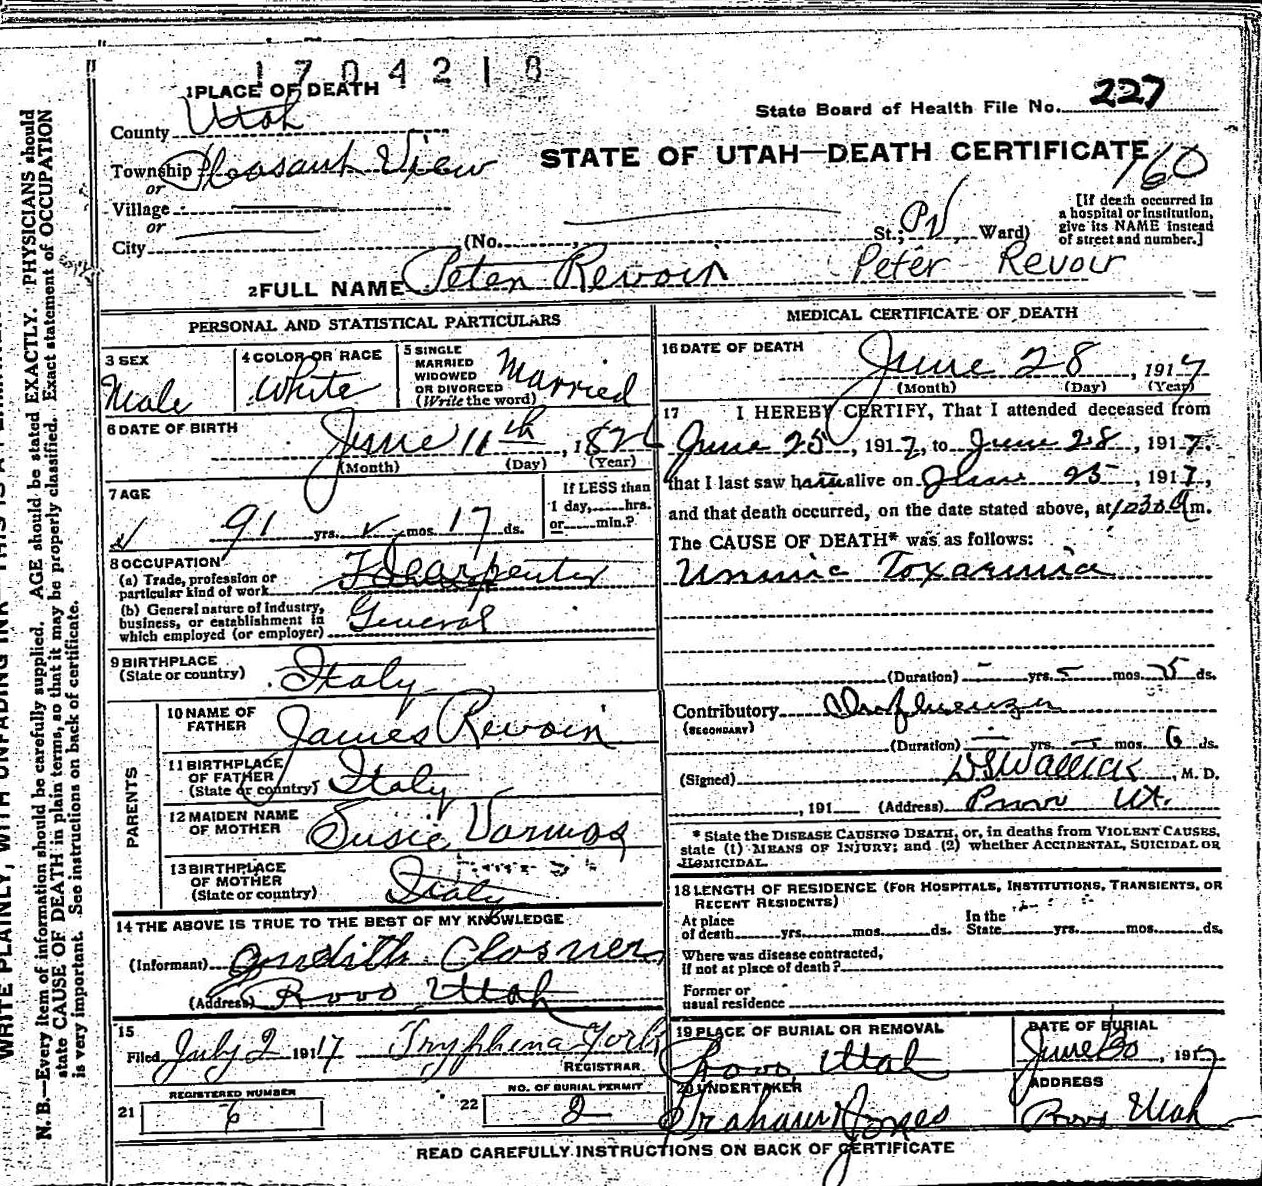 1704218
1 PLACE OF DEATH
State Board of Health File No. 227
County Utah
STATE OF UTAH—DEATH CERTIFICATE
160
Township Pleasant View
or
Village
or
City (No. St.; PV Ward)
[If death occurred in
a hospital or institution,
give its NAME instead
of street and number.]
2 FULL NAME Peter Revoir Peter Revoir
PERSONAL AND STATISTICAL PARTICULARS
3 SEX Male
4 COLOR OR RACE White
5 SINGLE
MARRIED
WIDOWED
OR DIVORCED
(Write the word) Married
6 DATE OF BIRTH
June 11th, 182
(Month) (Day) (Year)
7 AGE
91 yrs. mos. 17 ds.
If LESS than
1 day, hrs.
or min.?
8 OCCUPATION
(a) Trade, profession or
particular kind of work Carpenter
(b) General nature of industry,
business, or establishment in
which employed (or employer) General
9 BIRTHPLACE
(State or country) Italy
PARENTS
10 NAME OF
FATHER James Revoir
11 BIRTHPLACE
OF FATHER
(State or country) Italy
12 MAIDEN NAME
OF MOTHER Susie
13 BIRTHPLACE
OF MOTHER
(State or country) Italy
14 THE ABOVE IS TRUE TO THE BEST OF MY KNOWLEDGE
(Informant) Judith Closner
(Address) Provo Utah
15
Filed July 2 1917 Tryphena York
REGISTRAR.
REGISTERED NUMBER
21 6
NO. OF BURIAL PERMIT
22 2
MEDICAL CERTIFICATE OF DEATH
16 DATE OF DEATH
June 28, 1917
(Month) (Day) (Year)
17 I HEREBY CERTIFY, That I attended deceased from
June 25, 1917, to June 28, 1917.
that I last saw him alive on June 25, 1917,
and that death occurred, on the date stated above, at 1030 A m.
The CAUSE OF DEATH* was as follows:
Uremic Toxaemia
(Duration) yrs. mos. ds.
Contributory Influenza
(SECONDARY)
(Duration) yrs. mos. 6 ds.
(Signed) D S Wallick, M. D.
, 191 (Address) Provo Ut.
* State the DISEASE CAUSING DEATH, or, in deaths from VIOLENT CAUSES,
state (1) MEANS OF INJURY; and (2) whether ACCIDENTAL, SUICIDAL OR
HOMICIDAL.
18 LENGTH OF RESIDENCE (FOR HOSPITALS, INSTITUTIONS, TRANSIENTS, OR
RECENT RESIDENTS)
At place
of death yrs. mos. ds.
In the
State yrs. mos. ds.
Where was disease contracted,
if not at place of death?
Former or
usual residence
19 PLACE OF BURIAL OR REMOVAL
Provo, Utah
DATE OF BURIAL
June 30, 1917
20 UNDERTAKER
Graham Jones
ADDRESS
Provo Utah
READ CAREFULLY INSTRUCTIONS ON BACK OF CERTIFICATE
N. B.—Every item of information should be carefully supplied. AGE should be stated EXACTLY. PHYSICIANS should
state CAUSE OF DEATH in plain terms, so that it may be properly classified. Exact statement of OCCUPATION
is very important. See instructions on back of certificate.
WRITE PLAINLY, WITH UNFADING INK